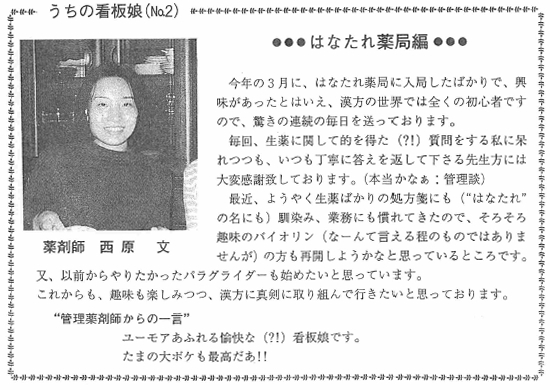 うちの看板娘(No.2)
●●●はなたれ薬局編●●●
今年の3月に、はなたれ薬局に入局したばかりで、興
味があったとはいえ、漢方の世界では全くの初心者です
ので、驚きの連続の毎日を送っております。
毎回、生薬に関して的を得た(?!)質問をする私に呆
れつつも、いつも丁寧に答えを返して下さる先生方には
大変感謝致しております。(本当かなぁ:管理談)
最近、ようやく生薬ばかりの処方箋にも(“はなたれ”
の名にも)馴染み、業務にも慣れてきたので、そろそろ
趣味のバイオリン(なーんて言える程のものではありま
せんが)の方も再開しようかなと思っているところです。
又、以前からやりたかったパラグライダーも始めたいと思っています。
これからも、趣味も楽しみつつ、漢方に真剣に取り組んで行きたいと思っております。
薬剤師 西原 文
“管理薬剤師からの一言”
ユーモアあふれる愉快な(?!)看板娘です。
たまの大ボケも最高だあ!!